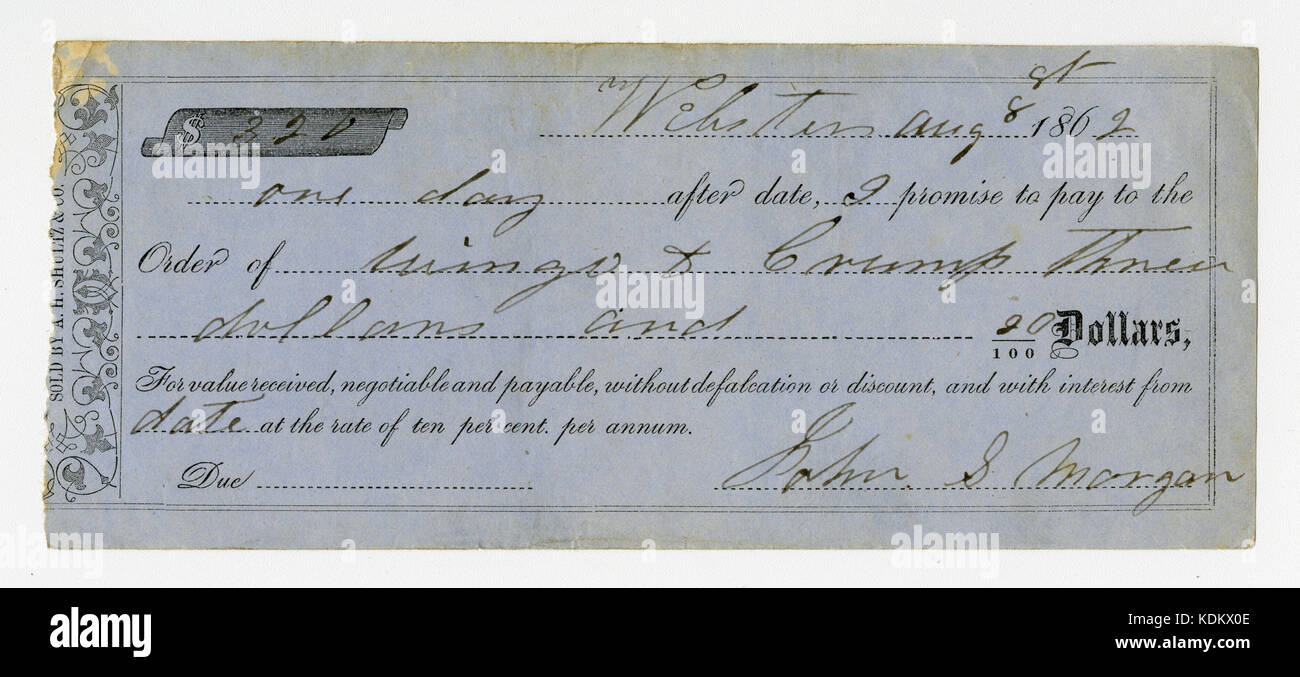 st
$ 3 20 Webster Aug 8 1862
one day after date, I promise to pay to the
Order of Wingo & Crump Three
dollars and 20/100 Dollars,
For value received, negotiable and payable, without defalcation or discount, and with interest from
date at the rate of ten per cent. per annum.
Due John S Morgan
SOLD BY A. H. SHULTZ & CO.
alamy
alamy
alamy
alamy
a
a
a
alamy
Image ID: KDKX0E
www.alamy.com